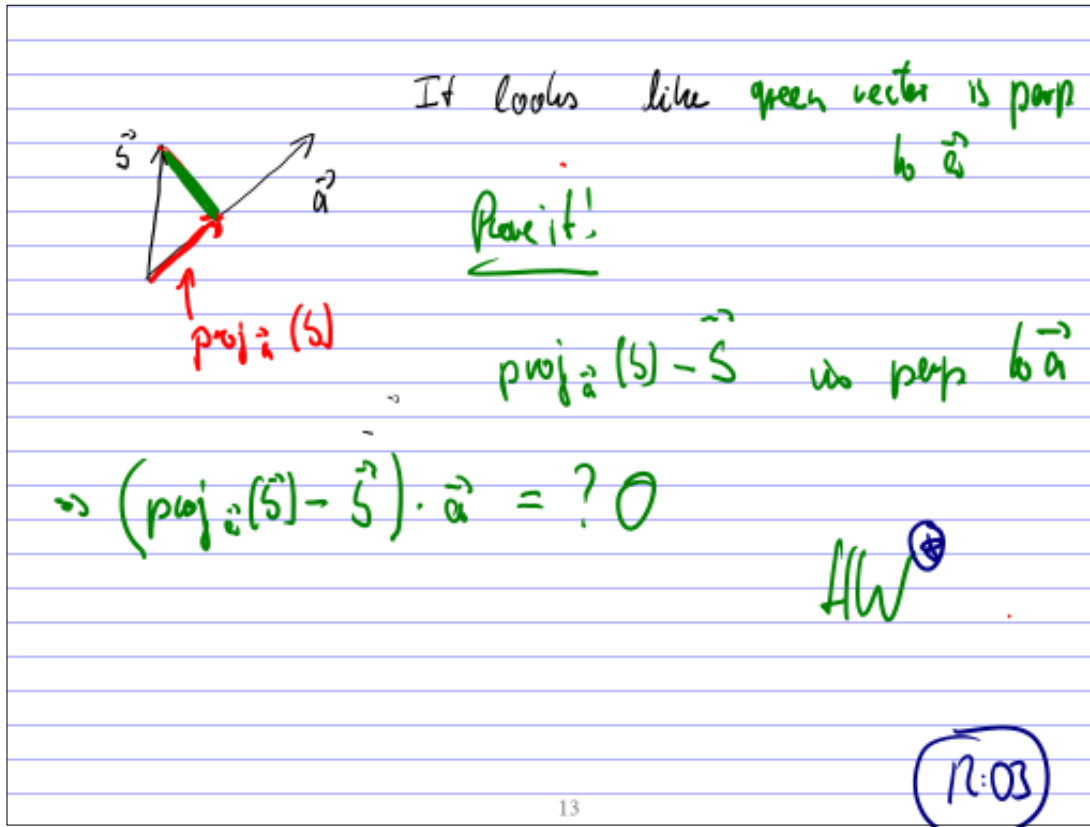 It looks like green vector is perp
to a⃗
s⃗
a⃗
Prove it!
proj a⃗ (s)
proj a⃗ (s) - s⃗ is perp to a⃗
=> (proj a⃗ (s⃗) - s⃗) · a⃗ = ? 0
HW
12:03
13